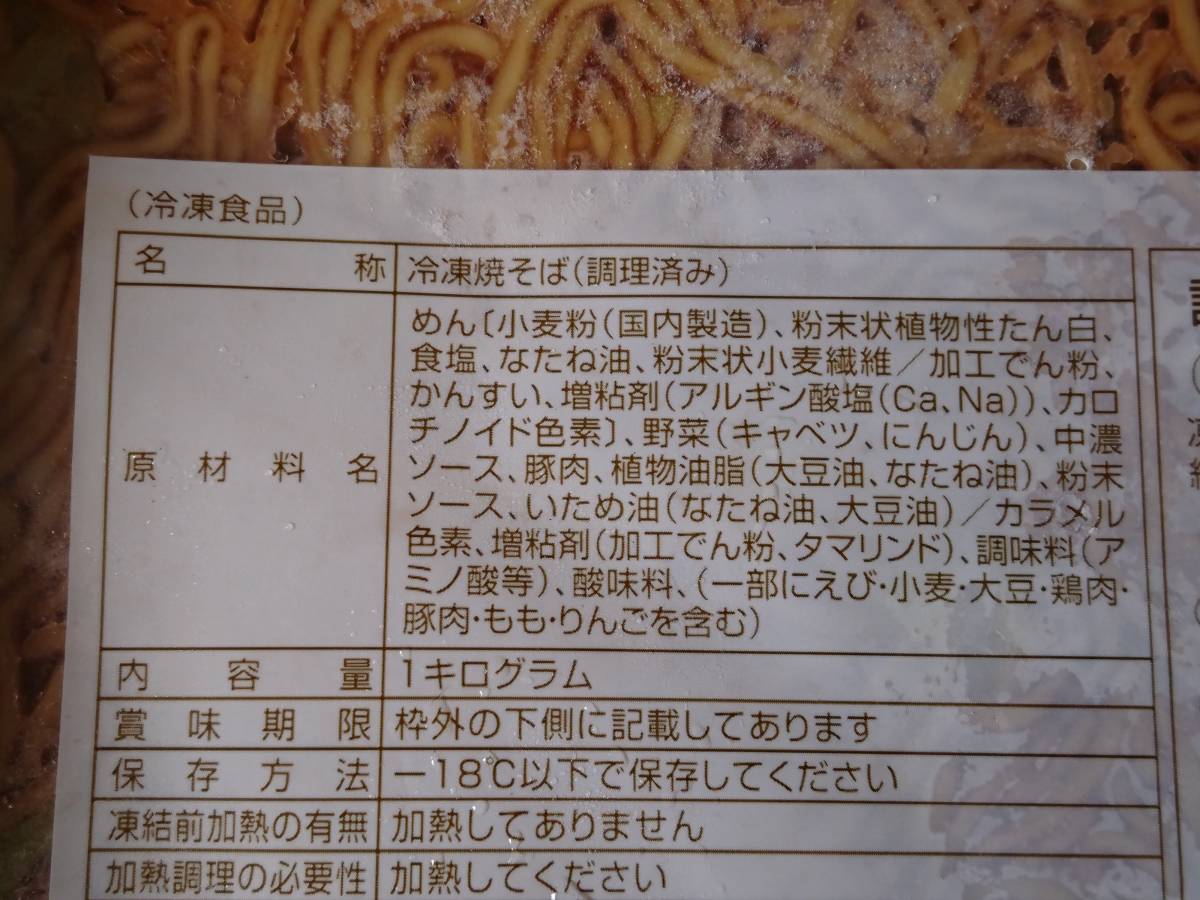 (冷凍食品)
名称 冷凍焼そば(調理済み)
めん〔小麦粉(国内製造)、粉末状植物性たん白、
食塩、なたね油、粉末状小麦繊維/加工でん粉、
かんすい、増粘剤(アルギン酸塩(Ca、Na))、カロ
チノイド色素〕、野菜(キャベツ、にんじん)、中濃
原材料名 ソース、豚肉、植物油脂(大豆油、なたね油)、粉末
ソース、いため油(なたね油、大豆油)/カラメル
色素、増粘剤(加工でん粉、タマリンド)、調味料(ア
ミノ酸等)、酸味料、(一部にえび・小麦・大豆・鶏肉・
豚肉・もも・りんごを含む)
内容量 1キログラム
賞味期限 枠外の下側に記載してあります
保存方法 −18℃以下で保存してください
凍結前加熱の有無 加熱してありません
加熱調理の必要性 加熱してください